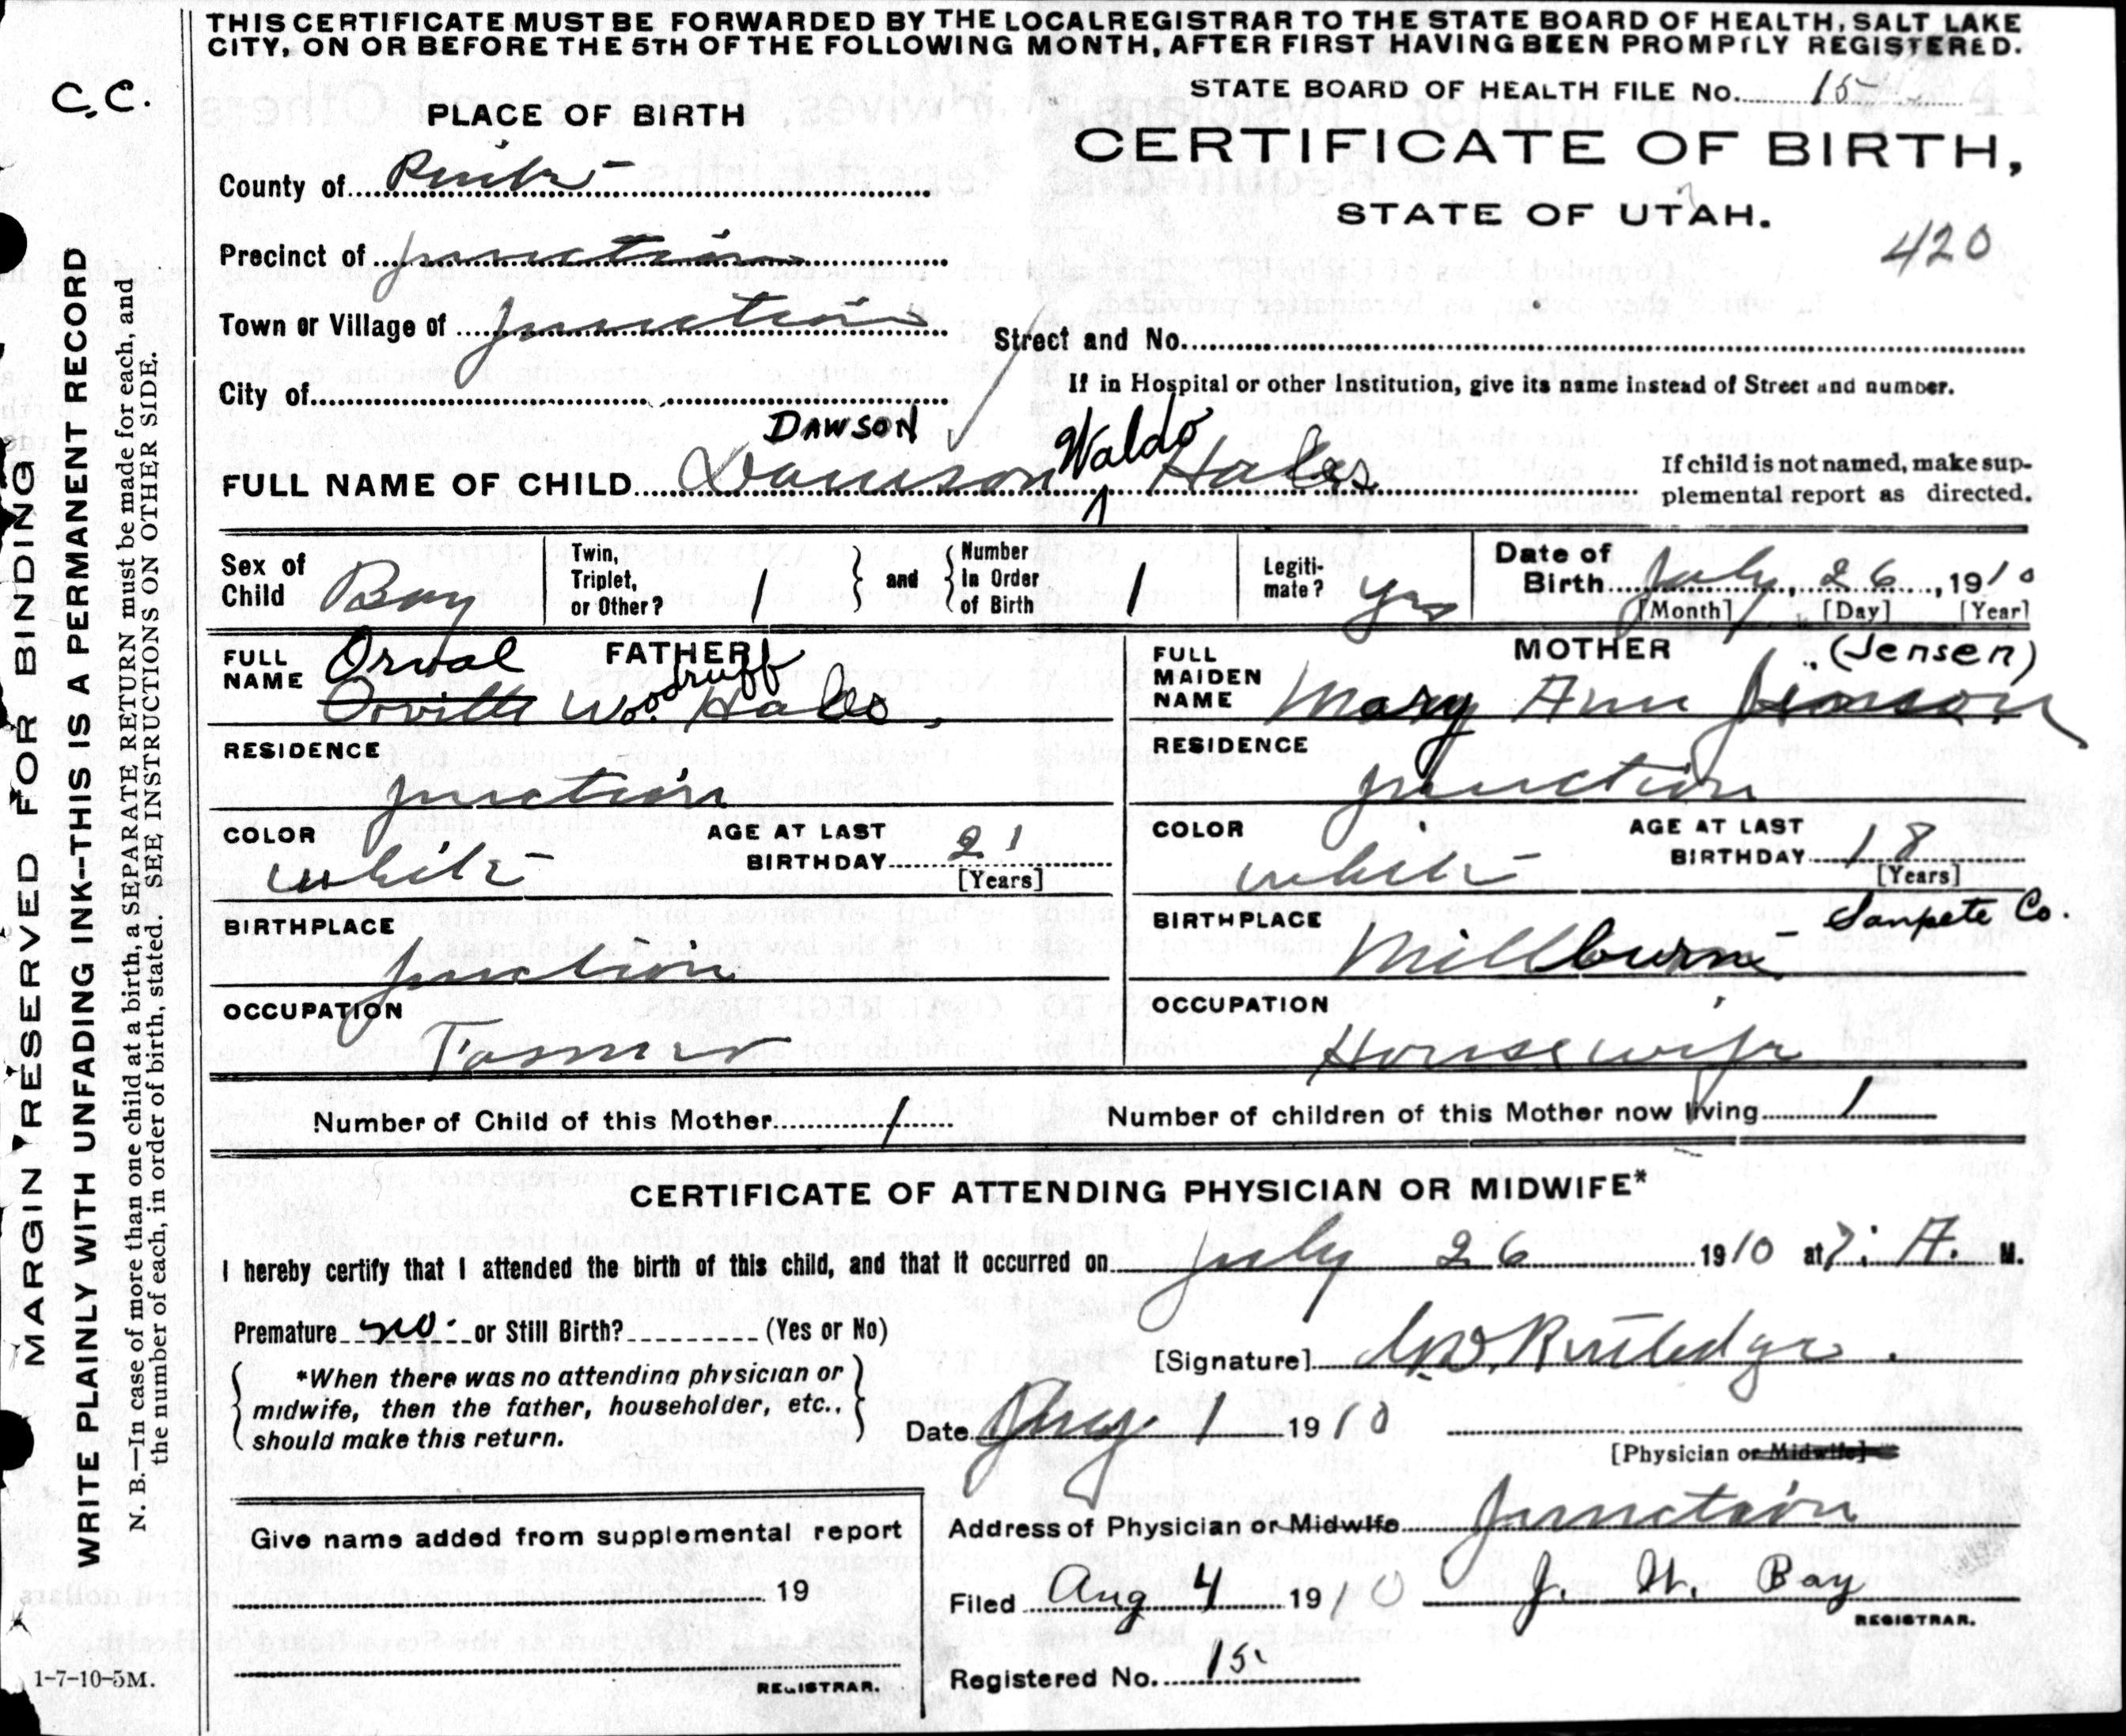 THIS CERTIFICATE MUST BE FORWARDED BY THE LOCAL REGISTRAR TO THE STATE BOARD OF HEALTH, SALT LAKE
CITY, ON OR BEFORE THE 5TH OF THE FOLLOWING MONTH, AFTER FIRST HAVING BEEN PROMPTLY REGISTERED.
C.C.
MARGIN RESERVED FOR BINDING
WRITE PLAINLY WITH UNFADING INK--THIS IS A PERMANENT RECORD
N. B.—In case of more than one child at a birth, a SEPARATE RETURN must be made for each, and
the number of each, in order of birth, stated. SEE INSTRUCTIONS ON OTHER SIDE.
1-7-10-5M.
STATE BOARD OF HEALTH FILE No. 15
PLACE OF BIRTH
CERTIFICATE OF BIRTH,
STATE OF UTAH.
420
County of Piute
Precinct of Junction
Town or Village of Junction
Street and No.
City of
If in Hospital or other Institution, give its name instead of Street and number.
DAWSON
Waldo
FULL NAME OF CHILD Hales
If child is not named, make sup-
plemental report as directed.
Sex of Child Boy
Twin, Triplet, or Other? 1
and
Number In Order of Birth 1
Legiti-mate? yes
Date of Birth July, 26, 1910
[Month] [Day] [Year]
FATHER
FULL NAME Orval
Orville Woodruff Hales
RESIDENCE
Junction
COLOR white
AGE AT LAST BIRTHDAY 21
[Years]
BIRTHPLACE
Junction
OCCUPATION
Farmer
MOTHER
(Jensen)
FULL MAIDEN NAME Mary Ann Jenson
RESIDENCE
Junction
COLOR white
AGE AT LAST BIRTHDAY 18
[Years]
BIRTHPLACE
Millburn - Sanpete Co.
OCCUPATION
Housewife
Number of Child of this Mother 1
Number of children of this Mother now living 1
CERTIFICATE OF ATTENDING PHYSICIAN OR MIDWIFE*
I hereby certify that I attended the birth of this child, and that it occurred on July 26 1910 at 7: A. M.
Premature no. or Still Birth? (Yes or No)
*When there was no attending physician or
midwife, then the father, householder, etc.,
should make this return.
[Signature] Rutledge.
Date Aug. 1 1910
[Physician or Midwife]
Address of Physician or Midwife Junction
Give name added from supplemental report
19
REGISTRAR.
Filed Aug 4 1910 J. W. Bay
REGISTRAR.
Registered No. 15